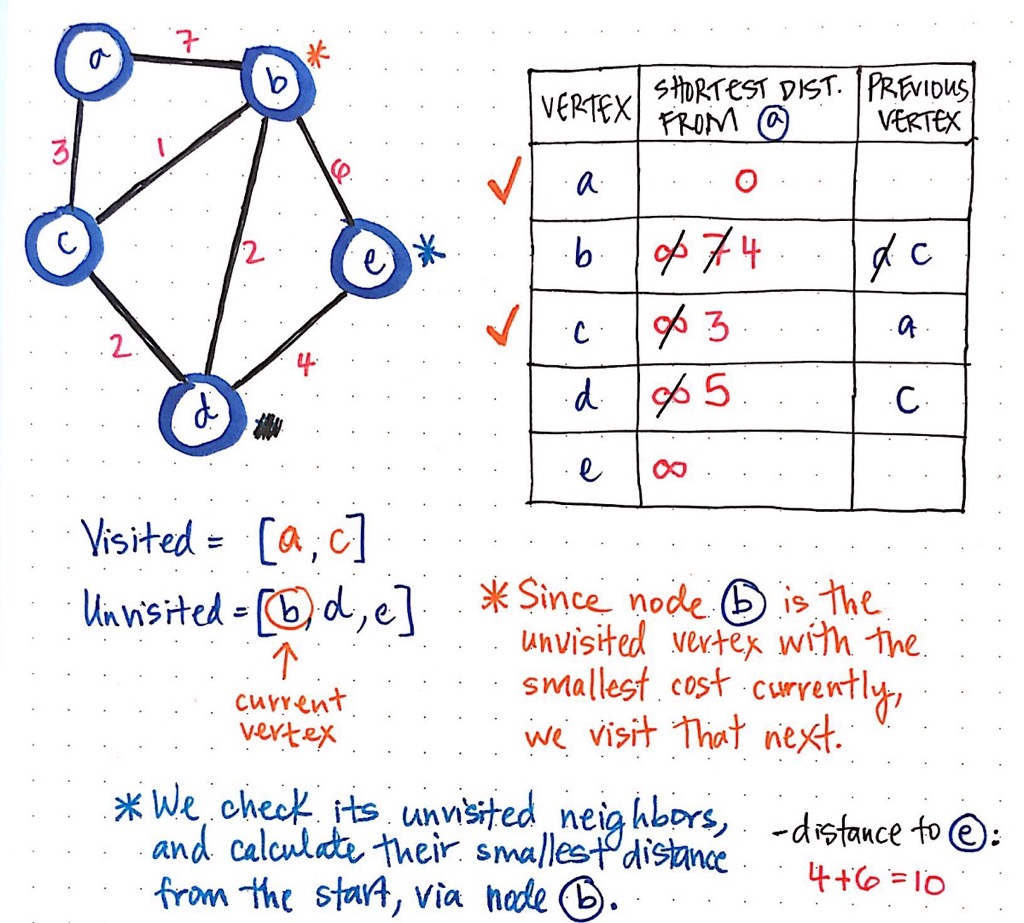 a
7
b *
3
1
6
c
2
e *
2
4
d
VERTEX SHORTEST DIST. FROM a PREVIOUS VERTEX
✓ a 0
b ∞ 7 4 a c
✓ c ∞ 3 a
d ∞ 5 c
e ∞
Visited = [a, c]
Unvisited = [b, d, e]
↑
current
vertex
* Since node b is the
unvisited vertex with the
smallest cost currently,
we visit that next.
* We check its unvisited neighbors,
and calculate their smallest distance
from the start, via node b.
- distance to e:
4+6=10